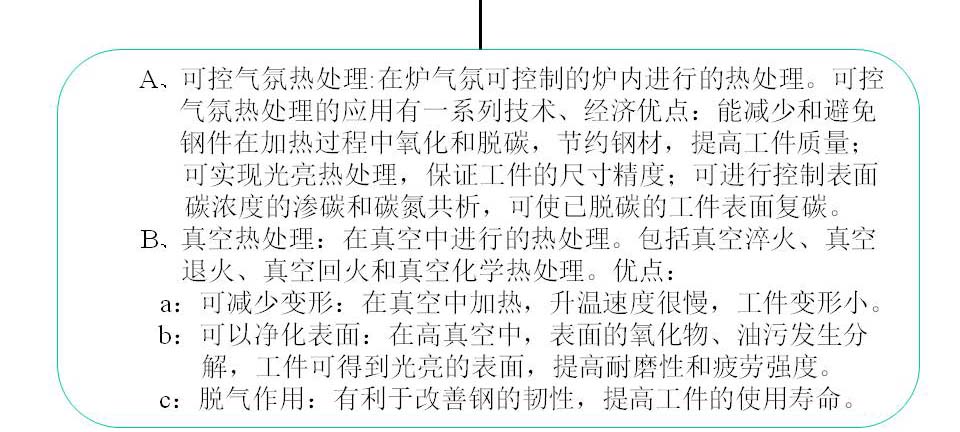 A、可控气氛热处理:在炉气氛可控制的炉内进行的热处理。可控
气氛热处理的应用有一系列技术、经济优点：能减少和避免
钢件在加热过程中氧化和脱碳，节约钢材，提高工件质量；
可实现光亮热处理，保证工件的尺寸精度；可进行控制表面
碳浓度的渗碳和碳氮共析，可使已脱碳的工件表面复碳。
B、真空热处理：在真空中进行的热处理。包括真空淬火、真空
退火、真空回火和真空化学热处理。优点：
a：可减少变形：在真空中加热，升温速度很慢，工件变形小。
b：可以净化表面：在高真空中，表面的氧化物、油污发生分
解，工件可得到光亮的表面，提高耐磨性和疲劳强度。
c：脱气作用：有利于改善钢的韧性，提高工件的使用寿命。